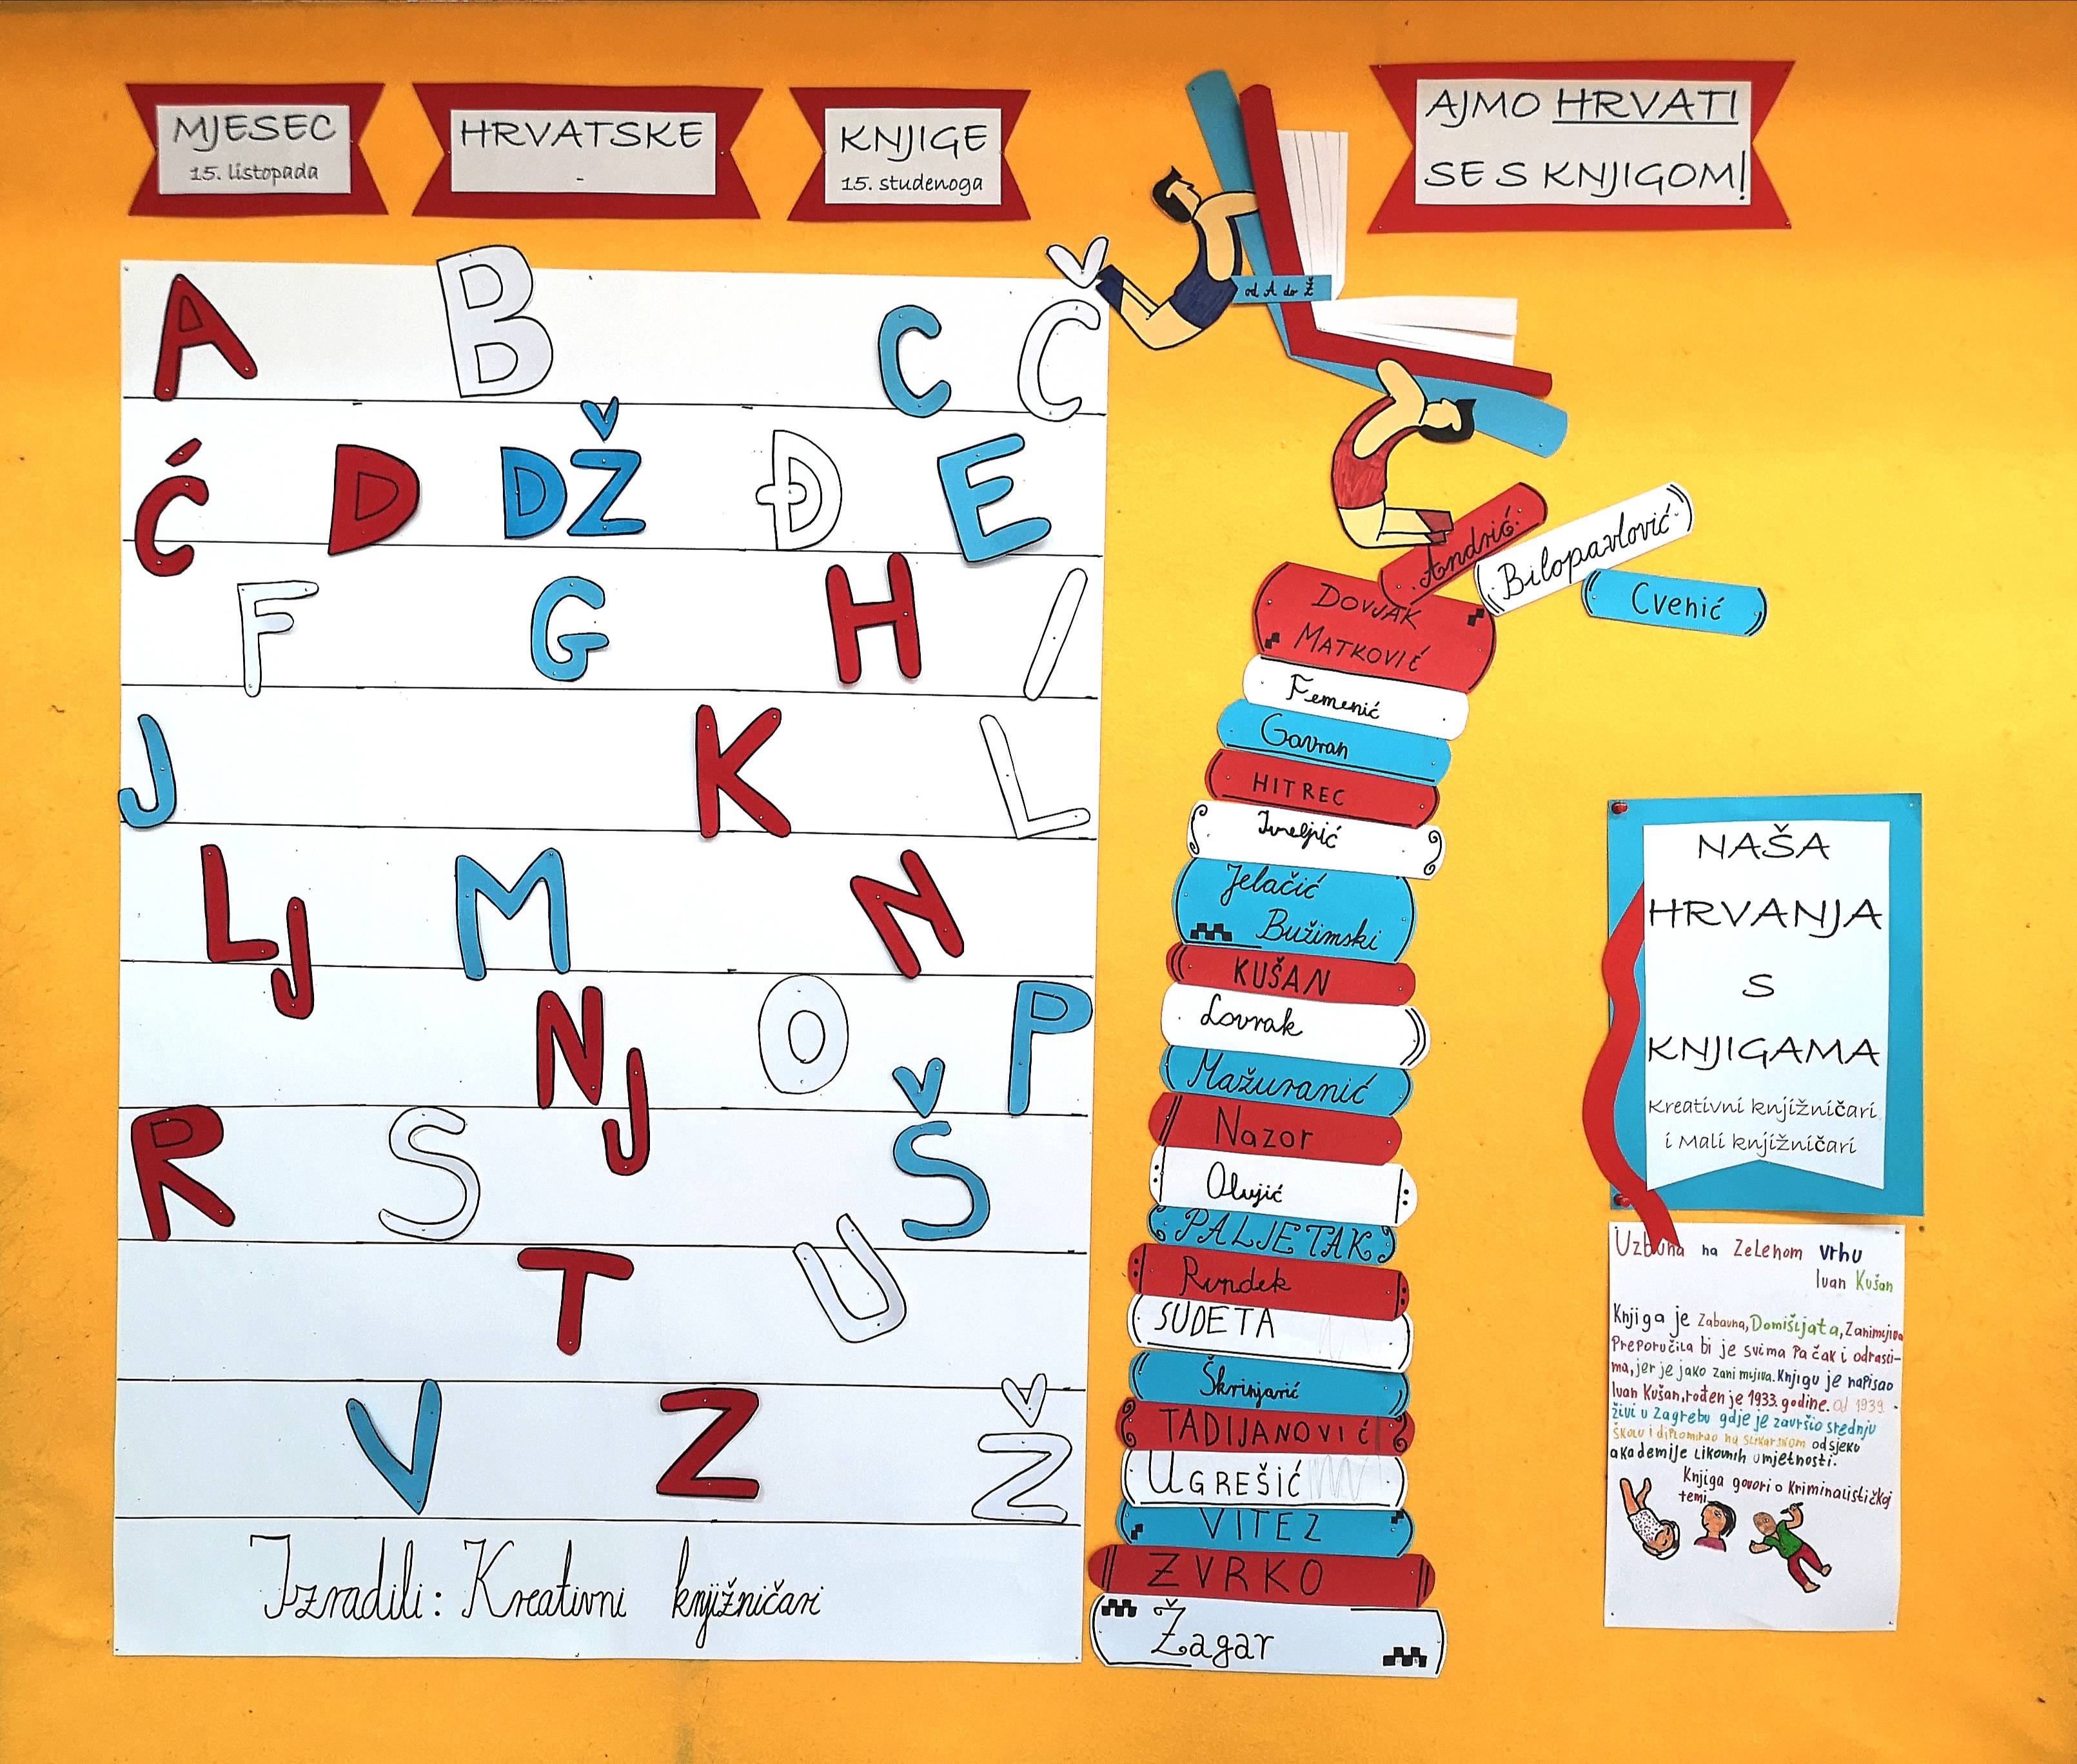 MJESEC
15. listopada
HRVATSKE
-
KNJIGE
15. studenoga
AJMO HRVATI
SE S KNJIGOM!
od A do Ž
A B C Č
Ć D DŽ Đ E
F G H I
J K L
LJ M N
NJ O P
R S Š
T U
V Z Ž
Izradili: Kreativni knjižničari
Andrić
Bilopavlović
Cvenić
DOVJAK
MATKOVIĆ
Femenić
Gavran
HITREC
Iveljić
Jelačić
Bužimski
KUŠAN
Lovrak
Mažuranić
Nazor
Olujić
PALJETAK
Rundek
SUDETA
Škrinjarić
TADIJANOVIĆ
UGREŠIĆ
VITEZ
ZVRKO
Žagar
NAŠA
HRVANJA
S
KNJIGAMA
Kreativni knjižničari
i Mali knjižničari
Uzbuna na Zelenom vrhu
Ivan Kušan
Knjiga je Zabavna, Domišljata, Zanimljiva
Preporučila bi je svima pa čak i odrasli-
ma, jer je jako zanimljiva. Knjigu je napisao
Ivan Kušan, rođen je 1933. godine. Od 1939.
živi u Zagrebu gdje je završio srednju
školu i diplomirao na slikarskom odsjeku
akademije Likovnih umjetnosti.
Knjiga govori o kriminalističkoj
temi